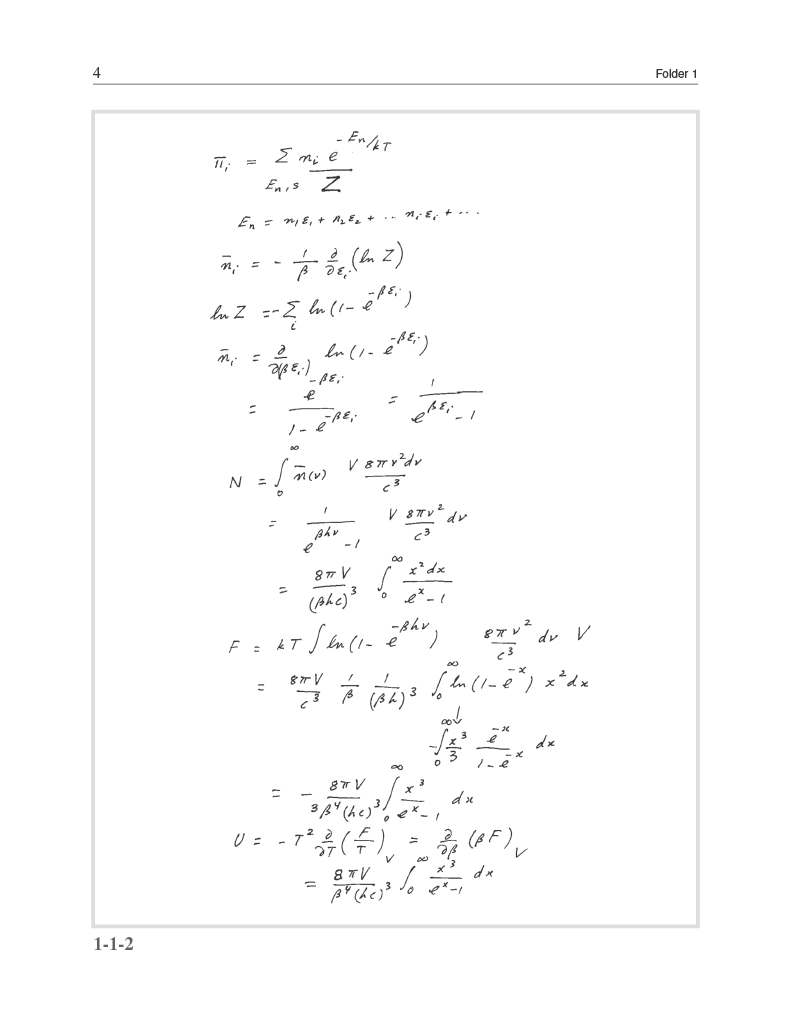 4 Folder 1
π̄ᵢ = Σ nᵢ e^{-Eₙ/kT}
Eₙ,s Z
Eₙ = n₁ε₁ + n₂ε₂ + ·· nᵢεᵢ + ···
n̄ᵢ = - 1/β ∂/∂εᵢ (ln Z)
ln Z = -Σᵢ ln(1 - e^{-βεᵢ})
n̄ᵢ = ∂/∂(βεᵢ) ln(1 - e^{-βεᵢ})
= e^{-βεᵢ}/(1 - e^{-βεᵢ}) = 1/(e^{βεᵢ} - 1)
N = ∫₀^∞ n̄(ν) V 8πν²dν/c³
= 1/(e^{βhν} - 1) V 8πν²/c³ dν
= 8πV/(βhc)³ ∫₀^∞ x²dx/(e^x - 1)
F = kT ∫ ln(1 - e^{-βhν}) 8πν²/c³ dν V
= 8πV/c³ 1/β 1/(βh)³ ∫₀^∞ ln(1 - e^{-x}) x²dx
↓
-∫₀^∞ x³/3 e^{-x}/(1 - e^{-x}) dx
= - 8πV/3β⁴(hc)³ ∫₀^∞ x³/(e^x - 1) dx
U = -T² ∂/∂T (F/T)_V = ∂/∂β (βF)_V
= 8πV/β⁴(hc)³ ∫₀^∞ x³/(e^x - 1) dx
1-1-2